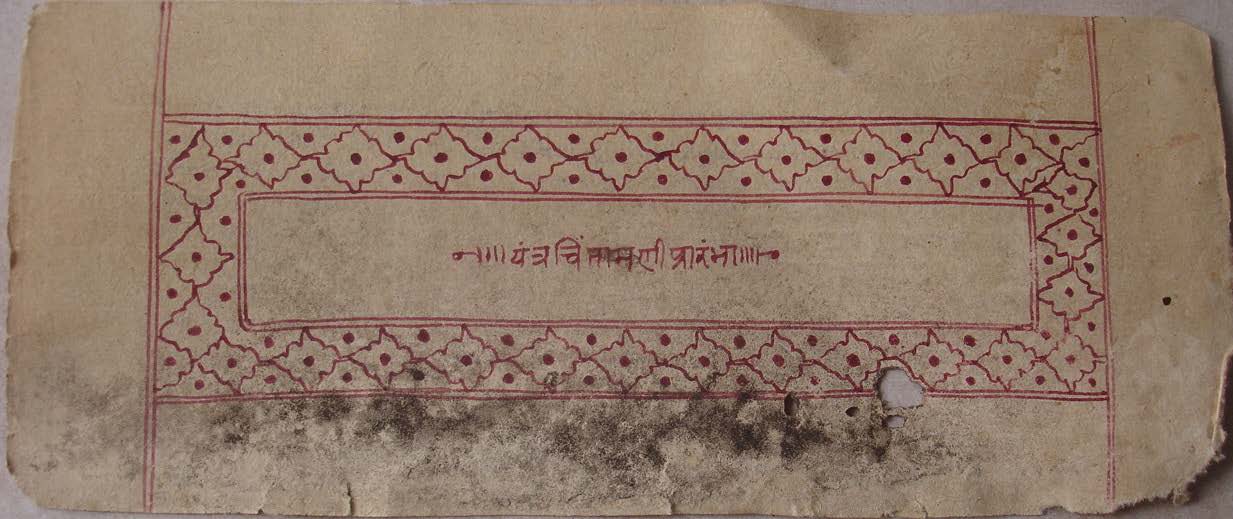 ॥॥यंत्रचिंतामणीप्रारंभा॥॥